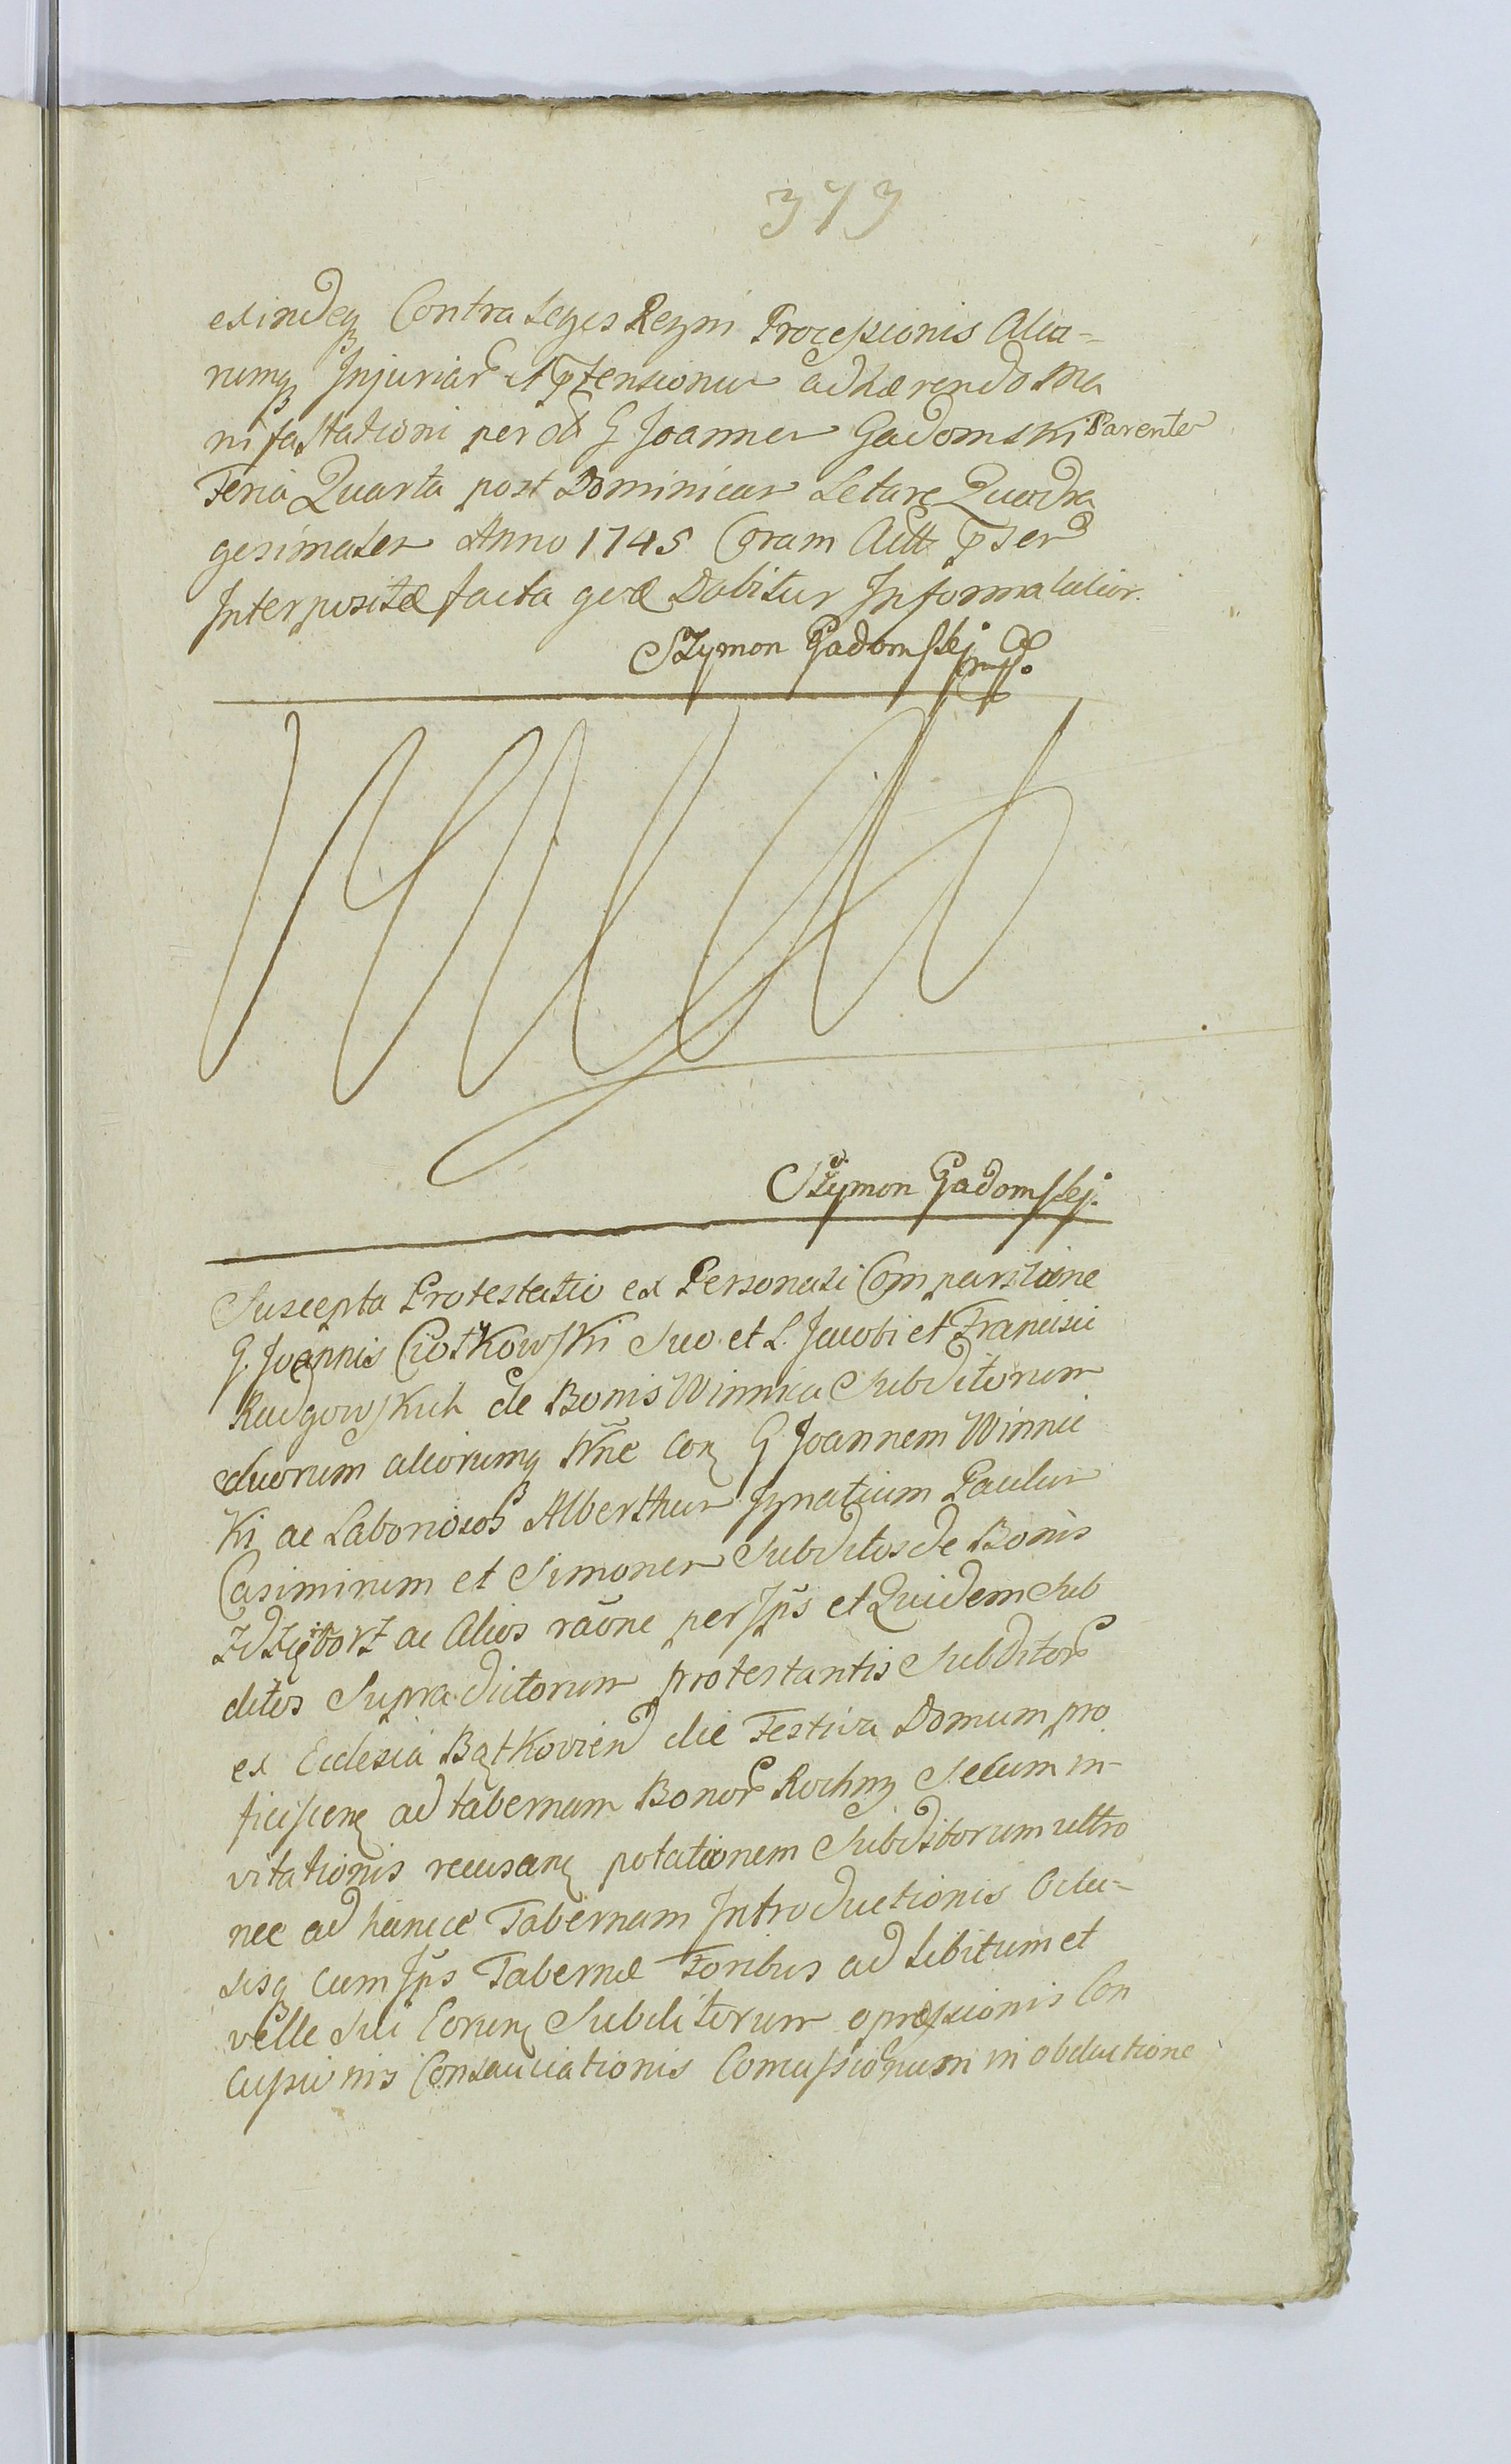 373
exindeq Contra Leges Regni Processionis Alia=
rumq Injuriar et ptensionum adhærendo Ma
nifestationi per olim G Joannem Gadomski Parentem
Feria Quarta post Dominicam Letare Quadra
gesimalem Anno 1745 Coram Actt pser
Interpositæ facta geræ Dabitur Informalior.
Szymon Gadomskj mp.
Szymon Gadomskj.
Suscepta Protestatio ex Personali Comparitione
G. Joannis Ciotkowski Suo et L. Jacobi et Francisci
Rudgowskich de Bonis Winnica Subditorum
duorum aliorumq nne Con G Joannem Winnic
Ki ac Laboriosos Alberthum Ignatium Paulum
Casimirum et Simonem Subditos de Bonis
Zdzięborz ac Alios raone per Ips et Quidem Sub
ditos Supra dictorum protestantis Subditor
ex Ecclesia Bątkovien die Festiva Domum pro
ficiscen ad tabernam Bonor Rochny Secum in-
vitationis recusan potationem Subditorum ultro
nee ad hancce Tabernam Introductionis Oclu=
sisq cum Ips Tabernæ Foribus ad Libitum et
velle Sui Eorum Subditorum opressionis Con
cussionis Consauciationis Comussionum in obductione